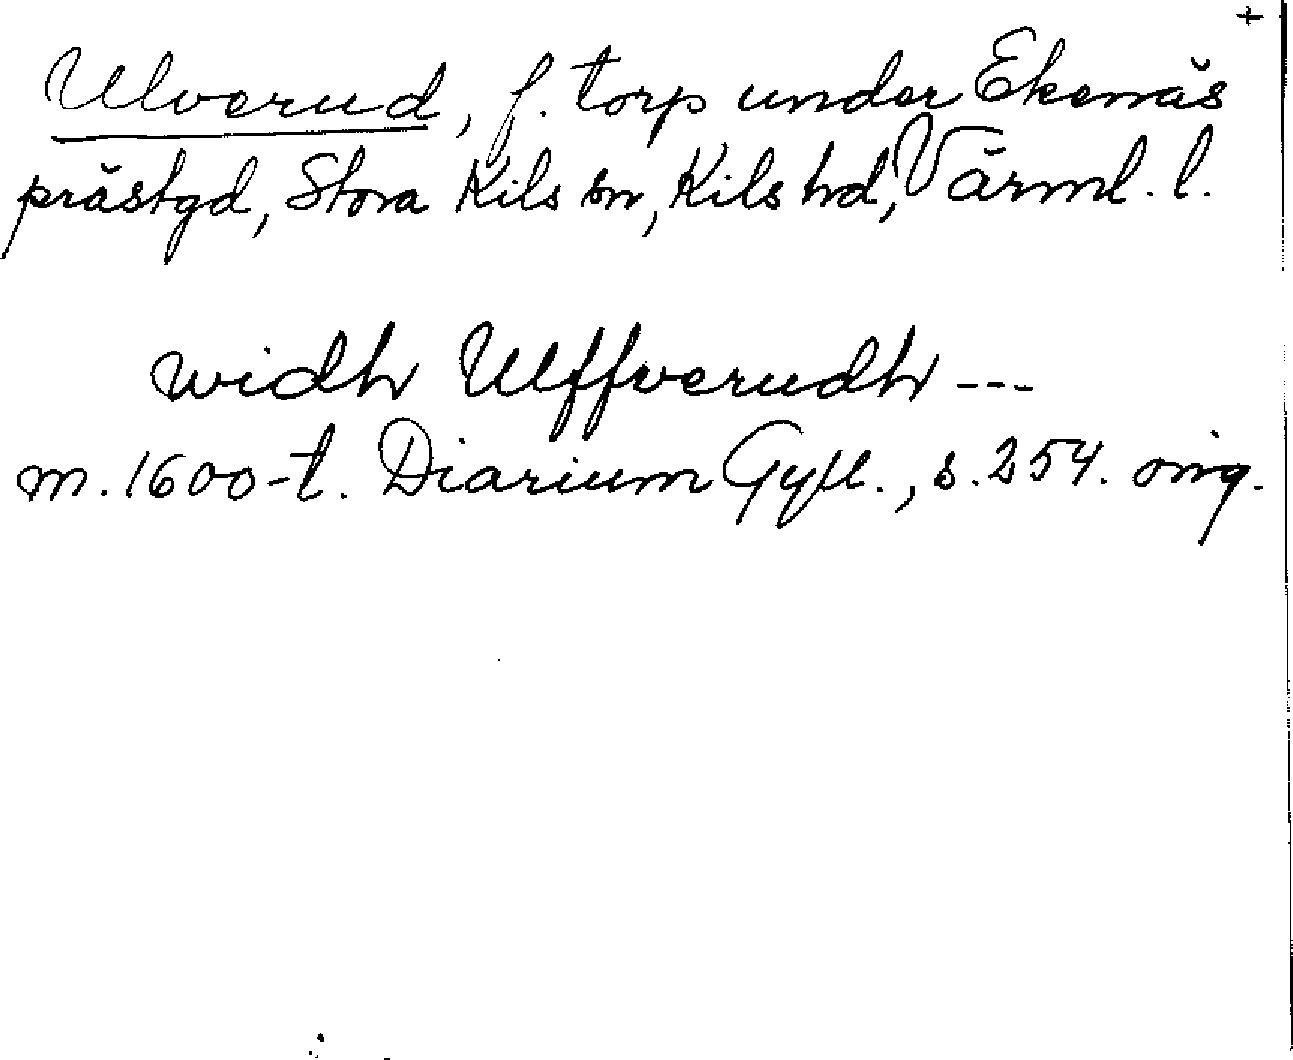 +
Ulverud, f. torp under Ekenäs
prästgd, Stora Kils sn, Kils hd, Värml. l.
widh Ulffverudh ---
m. 1600-t. Diarium Gyll., s. 254. orig.